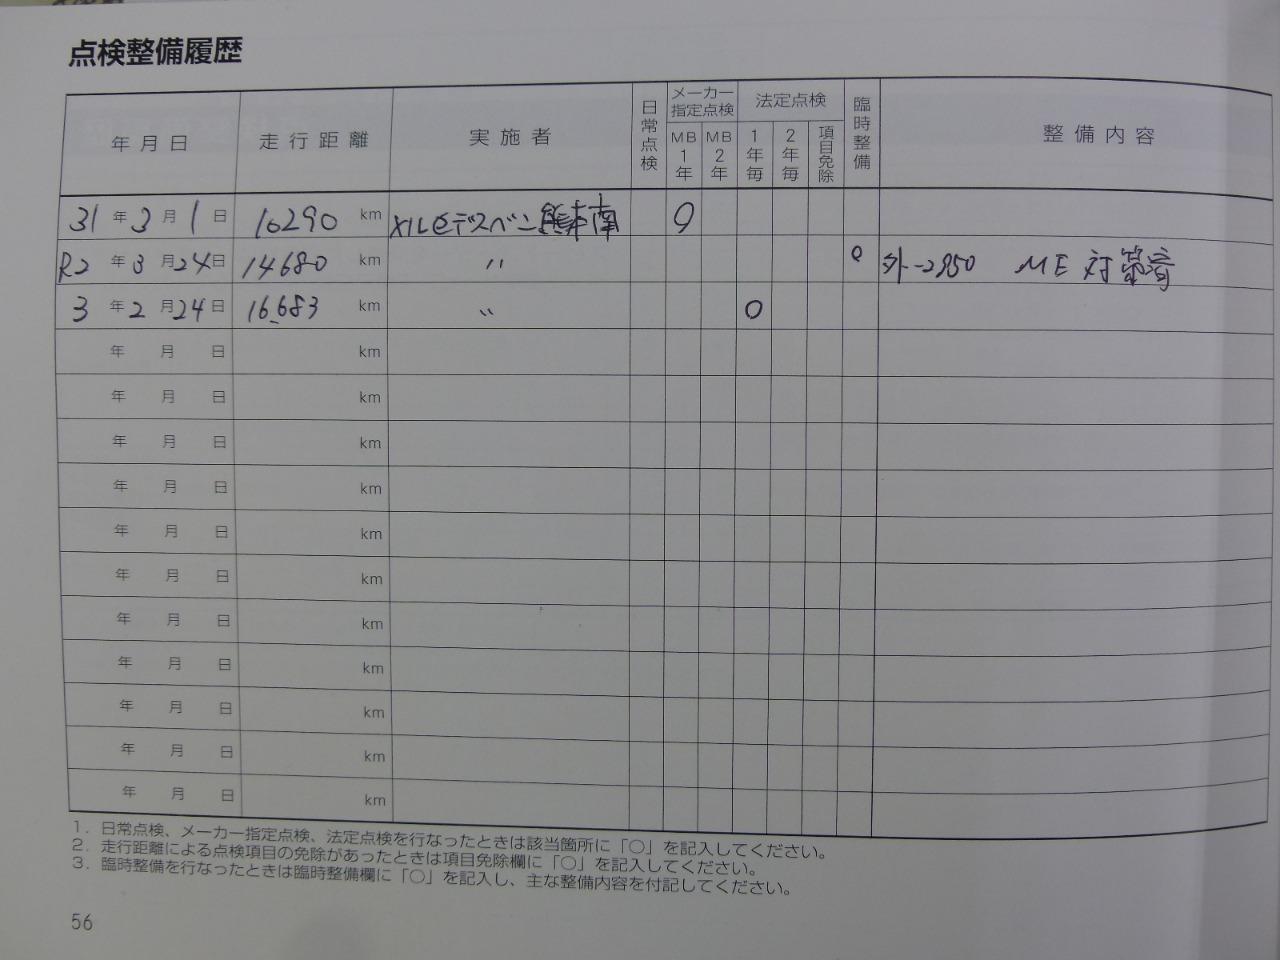 点検整備履歴
年月日 走行距離 実施者 日常点検 メーカー指定点検 MB1年 MB2年 法定点検 1年毎 2年毎 項目免除 臨時整備 整備内容
31年3月1日 10290 km メルセデスベンツ熊本南 ○
R2年3月24日 14680 km 〃 ○ 外-2950 ME 対策済
3年2月24日 16,683 km 〃 ○
年 月 日 km
年 月 日 km
年 月 日 km
年 月 日 km
年 月 日 km
年 月 日 km
年 月 日 km
年 月 日 km
年 月 日 km
年 月 日 km
年 月 日 km
1. 日常点検、メーカー指定点検、法定点検を行なったときは該当箇所に「○」を記入してください。
2. 走行距離による点検項目の免除があったときは項目免除欄に「○」を記入してください。
3. 臨時整備を行なったときは臨時整備欄に「○」を記入し、主な整備内容を付記してください。
56